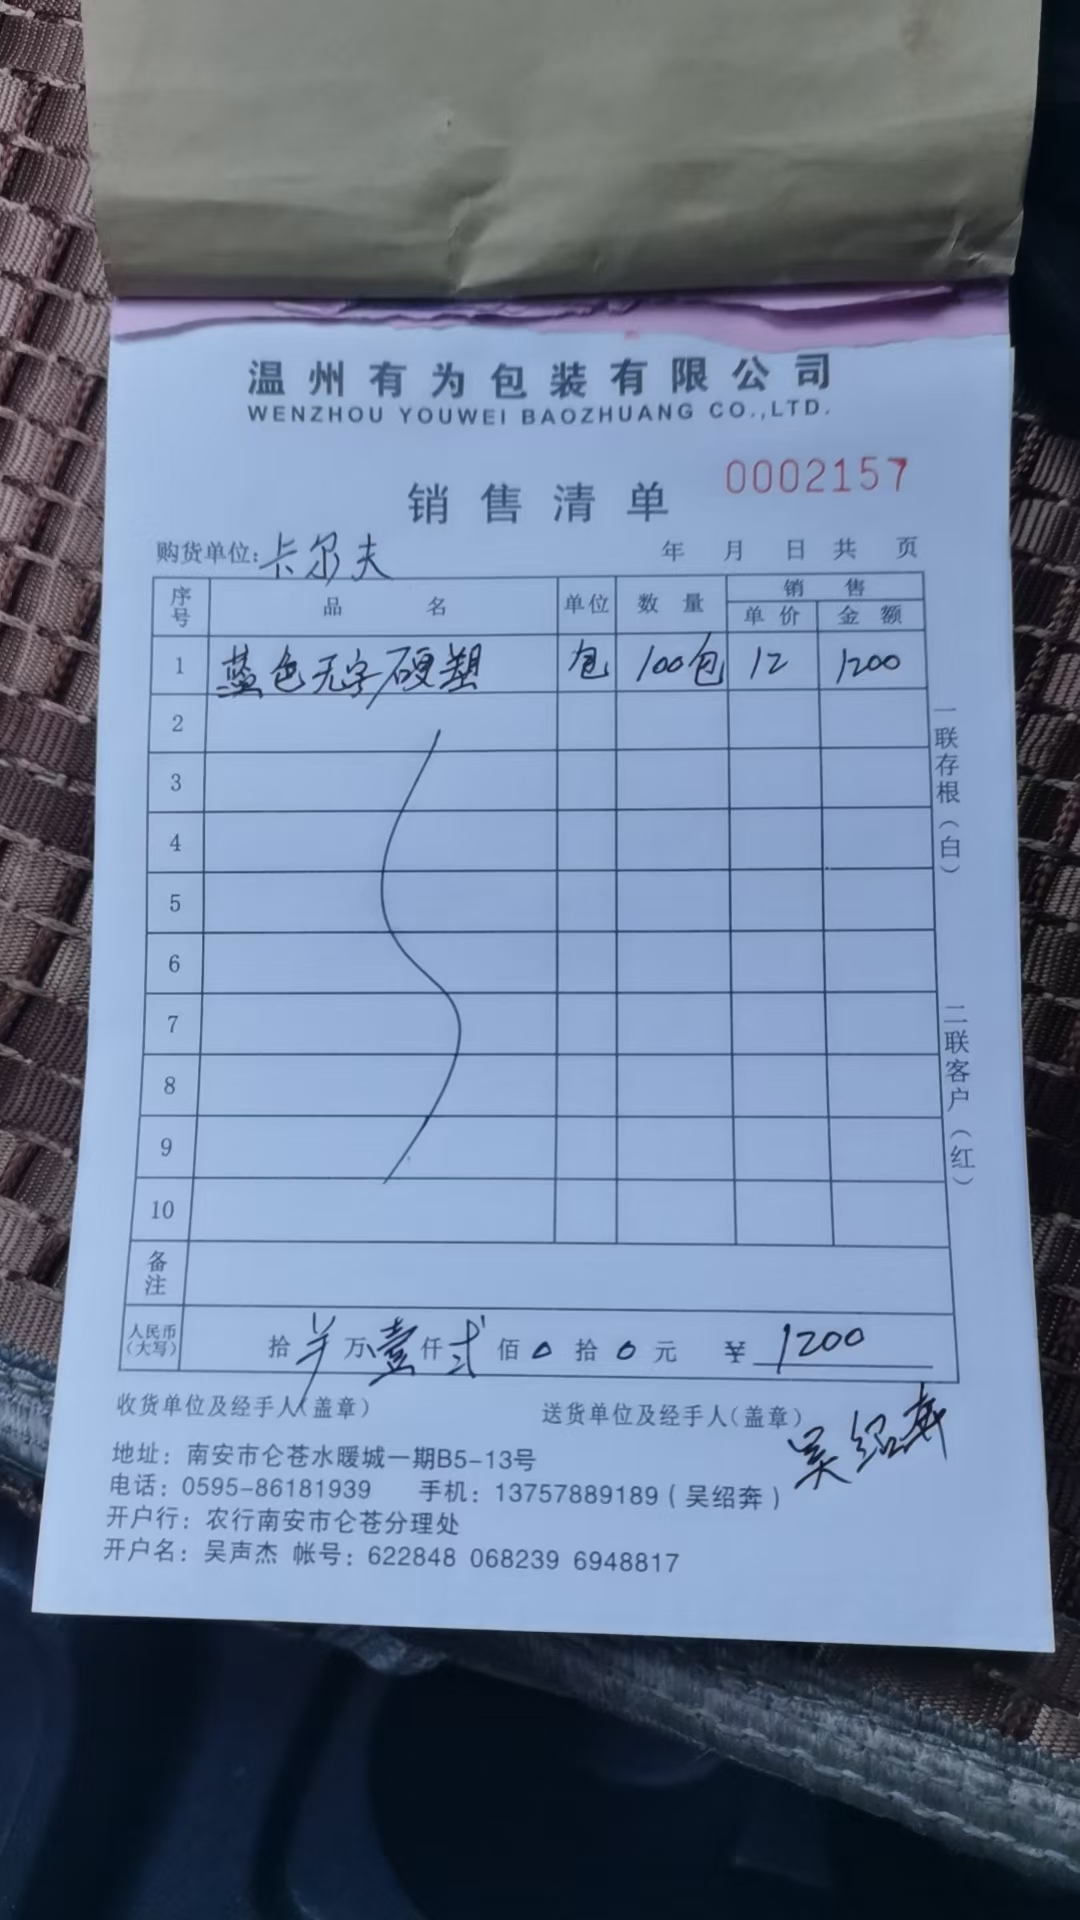 温州有为包装有限公司
WENZHOU YOUWEI BAOZHUANG CO.,LTD.
销售清单 0002157
购货单位:卡尔夫 年 月 日 共 页
序号 品名 单位 数量 销售
单价 金额
1 蓝色无字硬塑 包 100包 12 1200
2
3
4
5
6
7
8
9
10
备注
人民币(大写) 拾 万壹仟弍佰0拾0元 ¥1200
收货单位及经手人(盖章) 送货单位及经手人(盖章) 吴绍奔
地址:南安市仑苍水暖城一期B5-13号
电话:0595-86181939 手机:13757889189(吴绍奔)
开户行:农行南安市仑苍分理处
开户名:吴声杰 帐号:622848 068239 6948817
一联存根(白)
二联客户(红)